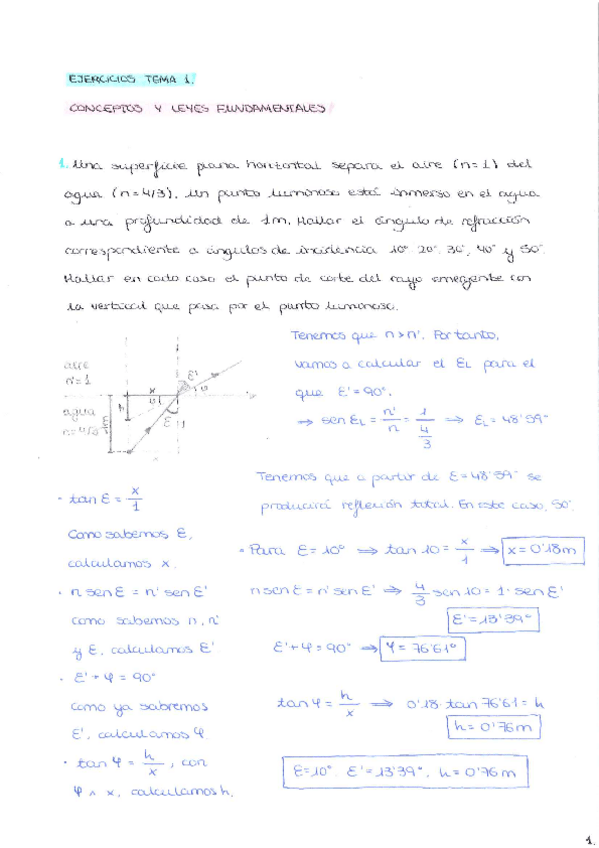 EJERCICIOS TEMA 1.
CONCEPTOS Y LEYES FUNDAMENTALES
1. Una superficie plana horizontal separa el aire (n=1) del
agua (n=4/3). Un punto luminoso está inmerso en el agua
a una profundidad de 1m. Hallar el ángulo de refracción
correspondiente a ángulos de incidencia 10° 20°, 30°, 40° y 50°.
Hallar en cada caso el punto de corte del rayo emergente con
la vertical que pasa por el punto luminoso.
Tenemos que n>n'. Por tanto,
vamos a calcular el EL para el
que ε'=90°.
⇒ sen EL = n'/n = 1/(4/3) ⇒ EL = 48'59°
aire
n'=1
agua
n=4/3
x
h
ε'
φ
φ
ε
1m
Tenemos que a partir de ε=48'59° se
producirá reflexión total. En este caso, 50°.
· tan ε = x/1
Como sabemos ε,
calculamos x.
· n sen ε = n' sen ε'
como sabemos n, n'
y ε, calculamos ε'
· ε' + φ = 90°
como ya sabremos
ε', calculamos φ
· tan φ = h/x, con
φ ∧ x, calculamos h.
· Para ε=10° ⇒ tan 10 = x/1 ⇒ x=0'18m
n sen ε = n' sen ε' ⇒ 4/3 sen 10 = 1· sen ε'
ε'=13'39°
ε'+φ=90° ⇒ φ=76'61°
tan φ = h/x ⇒ 0'18· tan 76'61 = h
h=0'76m
ε=10°. ε'=13'39°. h=0'76m
1.